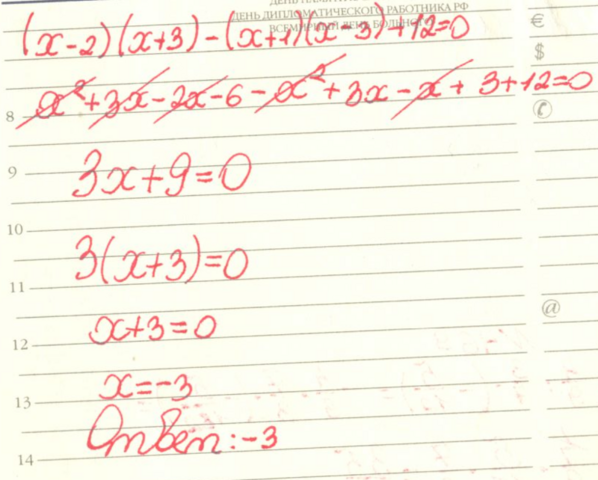 ДЕНЬ ДИПЛОМАТИЧЕСКОГО РАБОТНИКА РФ
ВСЕМИРНЫЙ ДЕНЬ БОЛЬНОГО
(x-2)(x+3)-(x+1)(x-3)+12=0
€
$
8 x²+3x-2x-6-x²+3x-x+3+12=0
9 3x+9=0
10
3(x+3)=0
11
@
x+3=0
12
x=-3
13
Ответ:-3
14